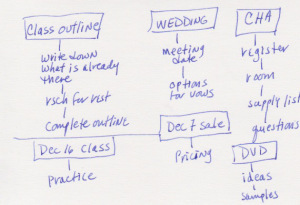 Class outline
write down
what is already
there
rsch for rest
Complete outline
WEDDING
meeting
date
options
for vows
CHA
register
room
supply list
questions
Dec 16 Class
practice
Dec 7 sale
pricing
DVD
ideas
samples